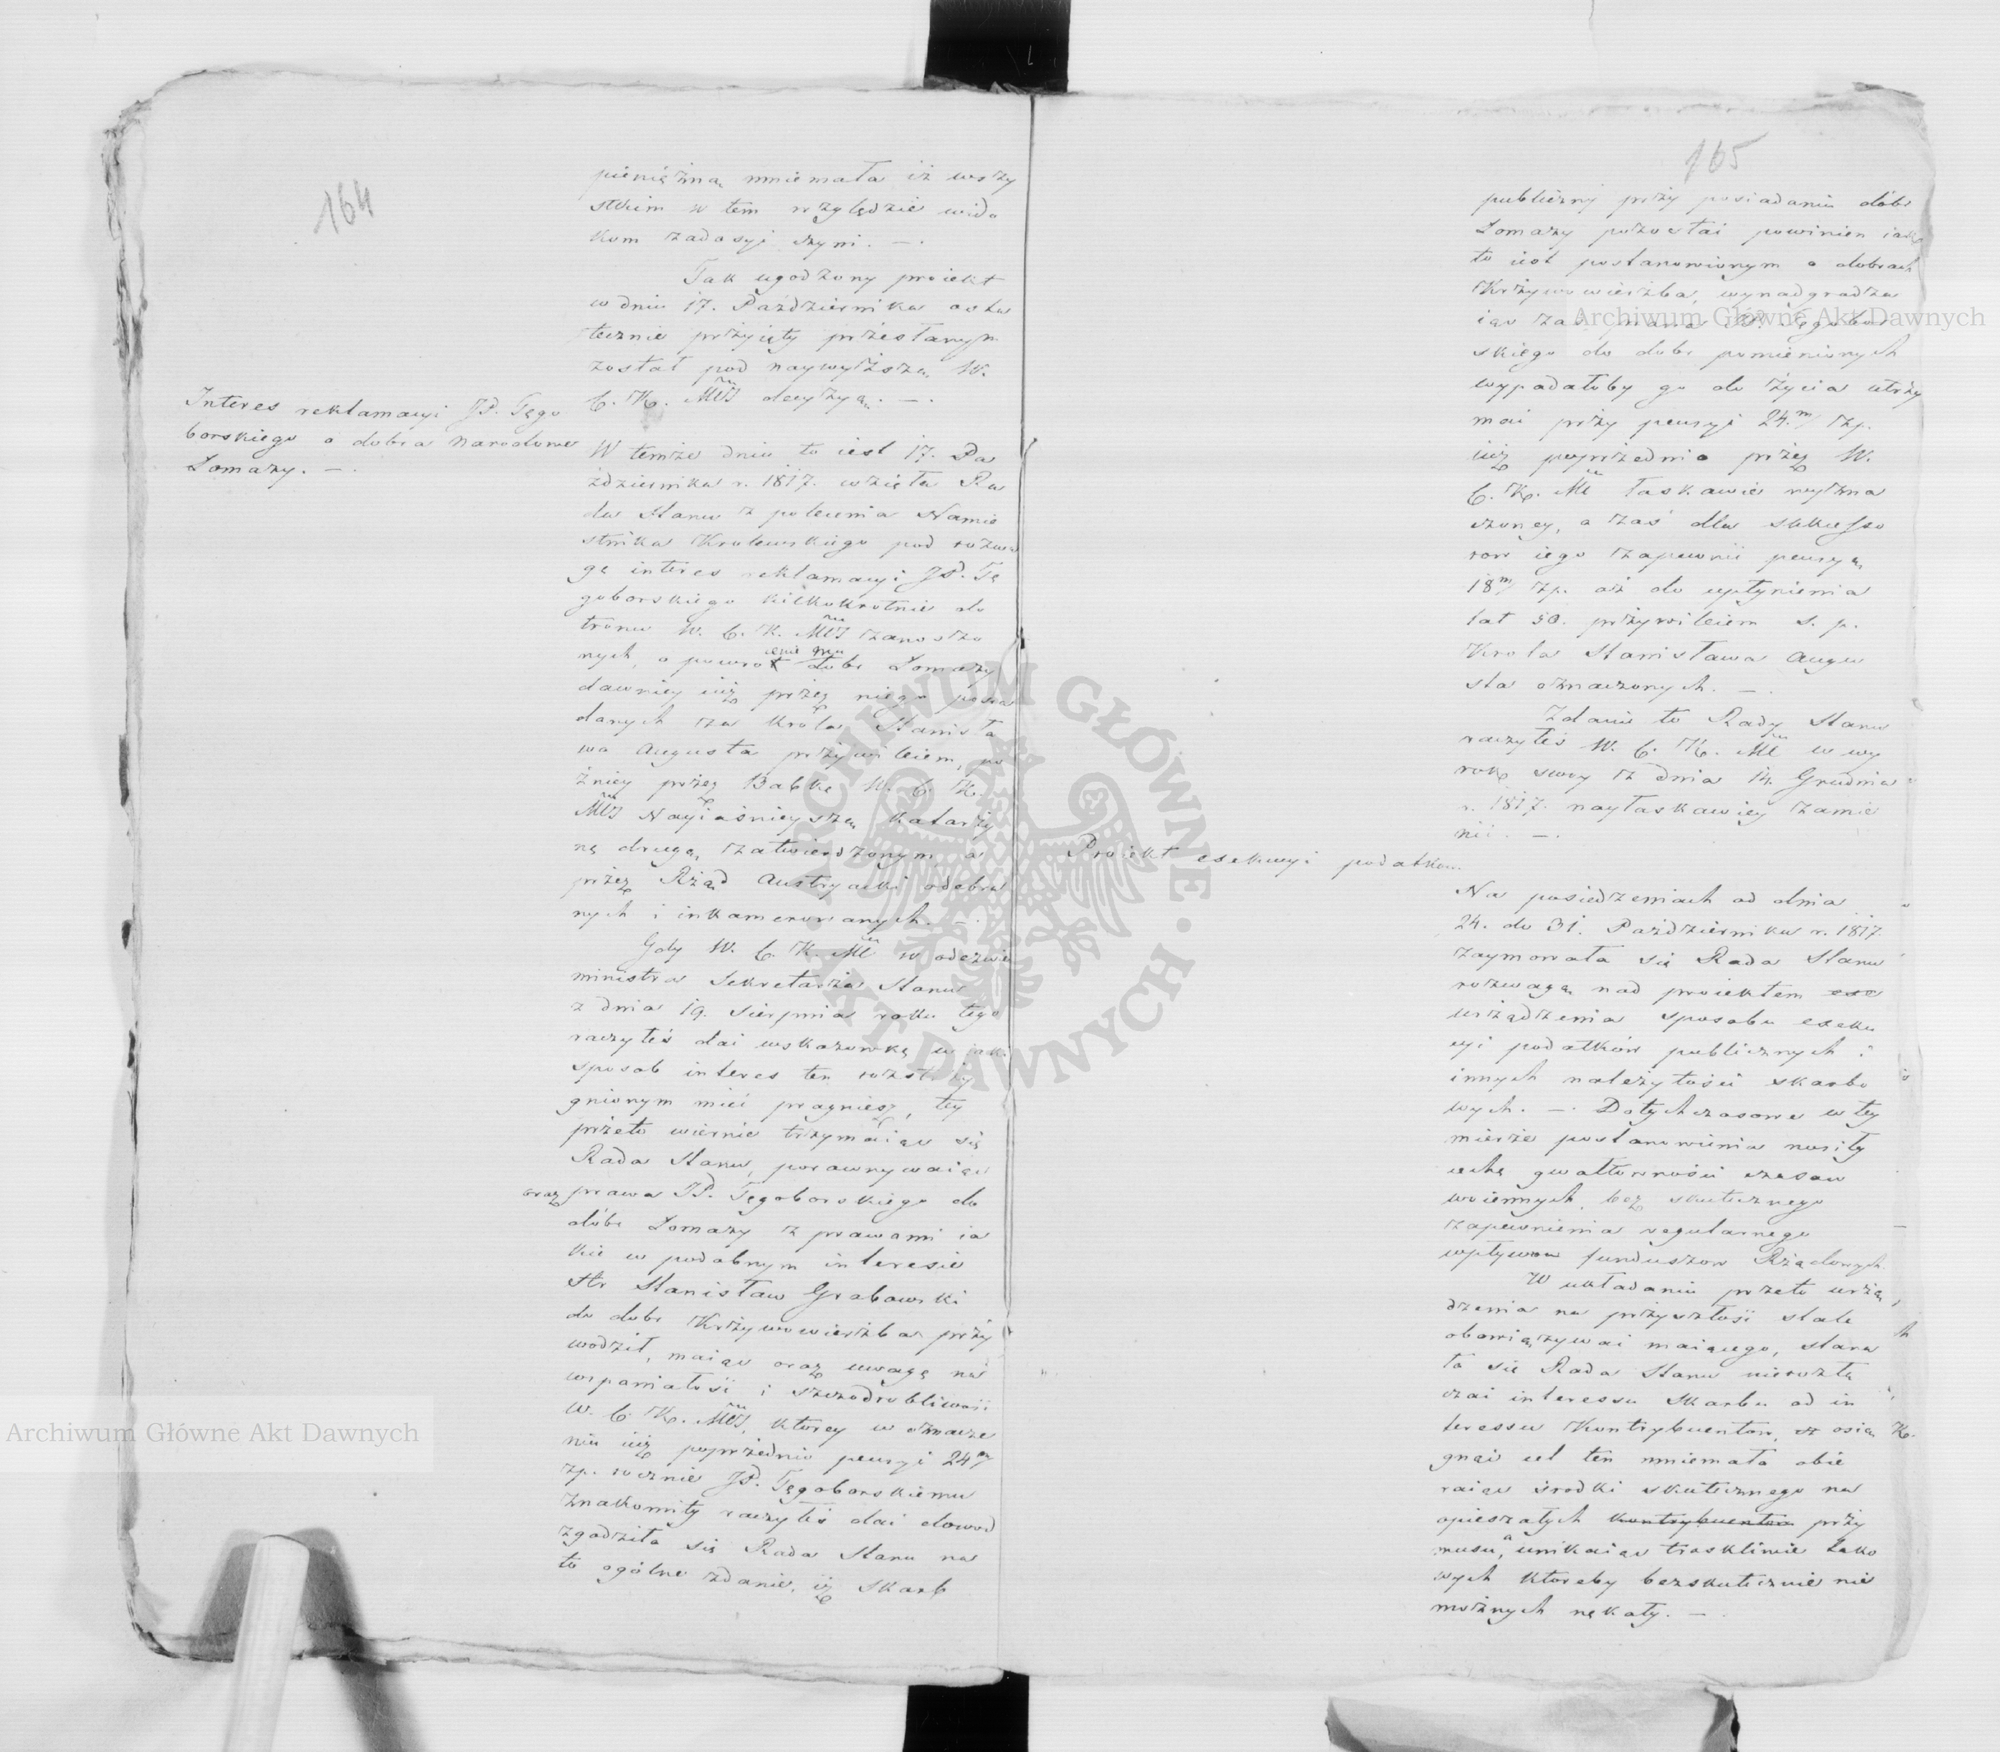 164
pieniężną mniemała iż wszy
stkim w tem względzie wido
kom zadosyć czyni. —.
Tak ugodzony proiekt
w dniu 17. Października osta
tecznie przyięty przesłanym
został pod naywyższą W.
C. K. Mci decyzyą. —.
Interes reklamacyi JP. Tęgo
borskiego o dobra narodowe
Łomazy. —.
W temże dniu to iest 17. Pa
ździernika r. 1817. wzięła Ra
da Stanu z polecenia Namie
stnika Krolewskiego pod rozwa
gę interes reklamacyi JP. Tę
goborskiego kilkokrotnie do
tronu W. C. K. Mci zanoszo
nych, o powrot dobr Łomazy
dawniey iuż przez niego posia
danych za Króla Stanisła
wa Augusta przywileiem, po
źniey przez Babkę W. C. K.
Mci Nayiaśnieyszą Katarzy
nę drugą zatwierdzonym a
przez Rząd Austryacki odebra
nych i inkamerowanych. —.
Gdy W. C. K. Mć w odezwie
ministra Sekretarza Stanu
z dnia 19. Sierpnia roku tego
raczyłeś dai wskazowkę w iaki
sposob interes ten rozstrzy
gnionym mieć pragniesz, tey
przeto wiernie trzymaiąc się
Rada Stanu, porownywaiąc
oraz prawa JP. Tęgoborskiego do
dóbr Łomazy z prawami ia
kie w podobnym interesie
Hr Stanisław Grabowski
do dobr Krzywowierzba przy
wodził, maiąc oraz uwagę na
wspaniałość i szczodrobliwość
W. C. K. Mci, ktorey w oznacze
niu iuż poprzednio pensyi 24m/
zp. rocznie JP. Tęgoborskiemu
znakomity raczyłeś dai dowod
zgodziła się Rada Stanu na
to ogólne zdanie, iż skarb
165
publiczny przy posiadaniu dóbr
Łomazy pozostać powinien iak
to iest postanowionym o dobrach
Krzywowierzba, wynadgradza
iąc zaś prawa JP. Tęgobor
skiego do dobr pomienionych
wypadałoby go do życia utrzy
mać przy pensyi 24.m/ zp.
iuż poprzednio przez W.
C. K. Mć łaskawie wyzna
czoney, a zaś dla sukcesso
row iego zapewnić pensyą
18m/ zp. aż do upłynienia
lat 50. przywileiem s. p.
Krola Stanisława Augu
sta oznaczonych. —.
Zdanie to Rady Stanu
raczyłeś W. C. K. Mć w wy
roku swoy z dnia 14. Grudnia
r. 1817. nayłaskawiey zamie
nić. —.
Proiekt exekucyi podatkow.
Na posiedzeniach od dnia
24. do 31. Października r. 1817.
zaymowała się Rada Stanu
rozwagą nad proiektem exe
urządzenia sposobu exeku
cyi podatków publicznych i
innych należytości skarbo
wych. —. Dotychczasowe w tey
mierze postanowienia nosiły
cechę gwałtowności czasow
woiennych, bez skutecznego
zapewnienia regularnego
wpływow funduszow Rządowych.
W układaniu przeto urzą
dzenia na przyszłość stale
obowiązywać maiącego, stara
ła się Rada Stanu nierozłą
czać interessu Skarbu od in
teressu Kontrybuentow, osią
gnąć cel ten mniemała obie
raiąc środki skutecznego na
opieszałych kontrybuentow przy
musu, a unikaiąc troskliwie tako
wych ktoreby bezskutecznie nie
możnych nękały. —.
Archiwum Główne Akt Dawnych
Archiwum Główne Akt Dawnych
ARCHIWUM GŁÓWNE · AKT DAWNYCH ·